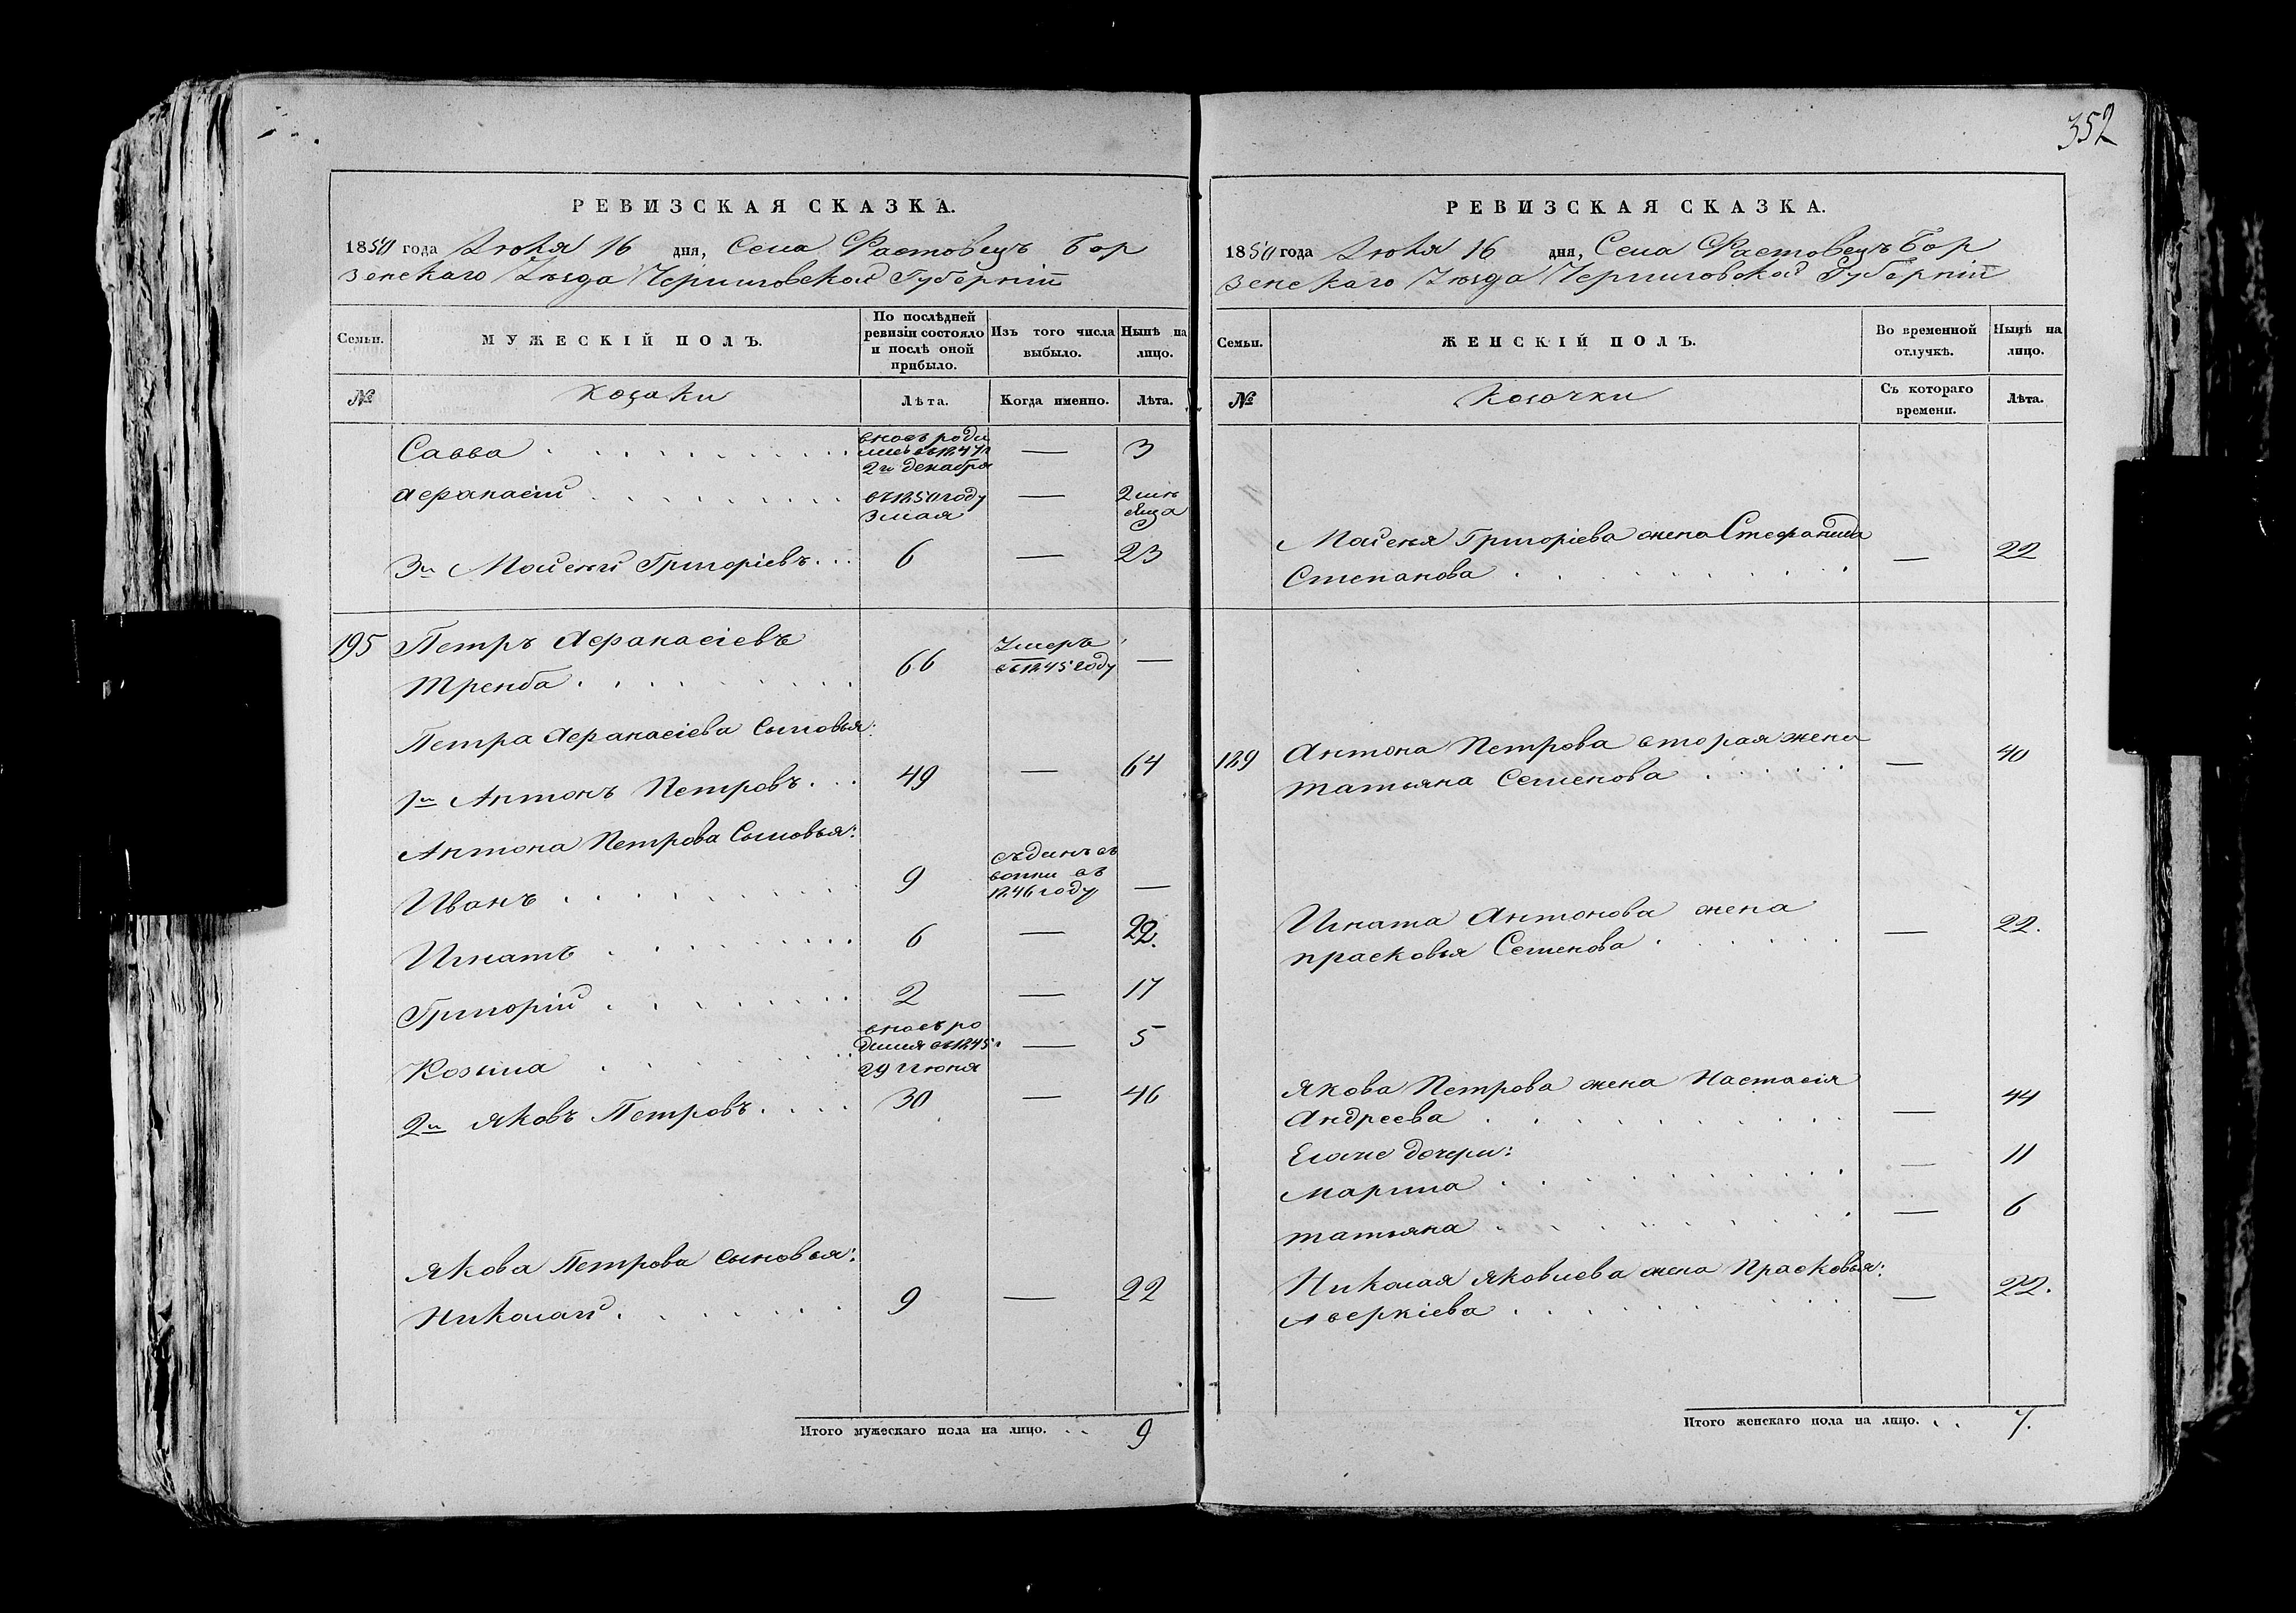 352
РЕВИЗСКАЯ СКАЗКА.
1850 года Июня 16 дня, Села Фастовецъ Бор
зенскаго Уѣзда Черниговской Губерніи
Семьи.
МУЖЕСКІЙ ПОЛЪ.
По послѣдней ревизіи состояло и послѣ оной прибыло.
Изъ того числа выбыло.
Нынѣ на лицо.
№
козаки
Лѣта.
Когда именно.
Лѣта.
Савва вновь роди
лись въ 1847 г — 3
2го декабря
Афанасій въ 1850 году — 2 мѣ
3 мая сяца
3й Моисей Григоріевъ 6 — 23
195 Петръ Афанасіевъ Умеръ
Тренба 66 въ 1845 году —
Петра Афанасіева Сыновья:
1й Антонъ Петровъ 49 — 64
Антона Петрова Сыновья:
Иванъ 9 въ
1846 году —
Игнатъ 6 — 22.
Григорій 2 — 17
Козьма вновь ро
дился въ 1845 г — 5
29 Июня
2й Яковъ Петровъ 30 — 46
Якова Петрова сыновья:
Николай 9 — 22
Итого мужескаго пола на лицо. 9
РЕВИЗСКАЯ СКАЗКА.
1850 года Июня 16 дня, Села Фастовецъ Бор
зенскаго Уѣзда Черниговской Губерніи
Семьи.
ЖЕНСКІЙ ПОЛЪ.
Во временной отлучкѣ.
Нынѣ на лицо.
№
Козачки
Съ котораго времени.
Лѣта.
Моисея Григоріева жена Стефанида
Степанова — 22
189 Антона Петрова вторая жена
Татьяна Семенова — 40
Игната Антонова жена
Прасковья Семенова — 22.
Якова Петрова жена Настасія
Андреева — 44
Его же дочери:
Марина — 11
Татьяна — 6
Николая Яковлева жена Прасковья:
Аверкіева — 22.
Итого женскаго пола на лицо. 7.